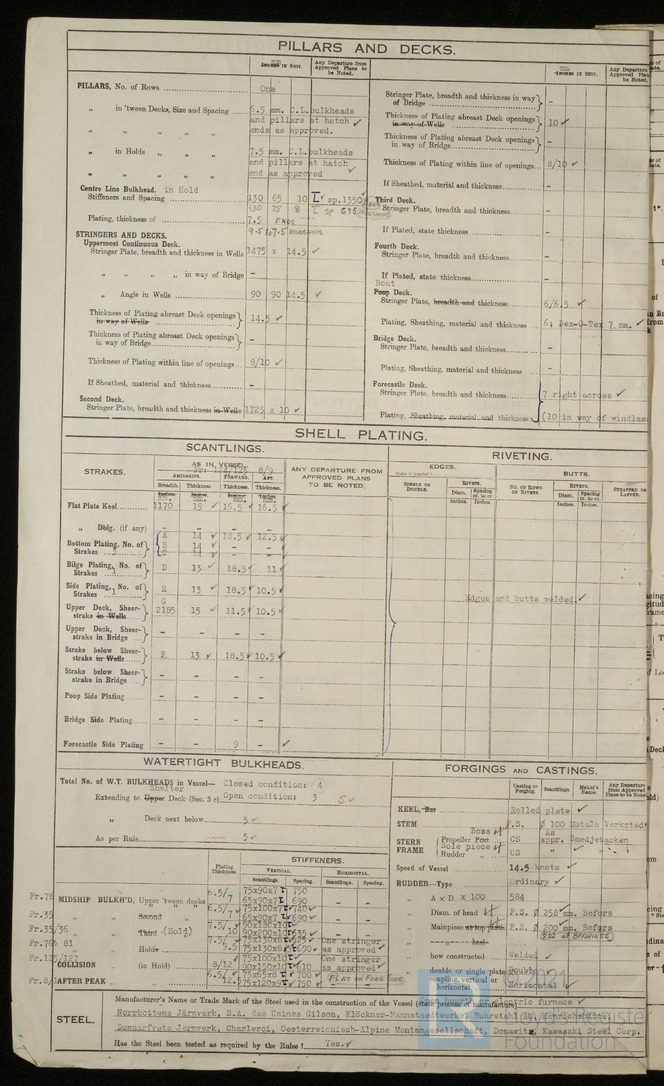 PILLARS AND DECKS.
INCHES IN SHIP.
Any Departure from Approved Plans to be Noted.
PILLARS, No. of Rows
One
„ in 'tween Decks, Size and Spacing
6.5 mm. C.L. bulkheads
and pillars at hatch
ends as approved.
„ in Holds
7.5 mm. C.L. bulkheads
and pillars at hatch
end as approved
Centre Line Bulkhead. in Hold
Stiffeners and Spacing
130 65 10 sp.1350
130 75 8 sp 675
Plating, thickness of
7.5 ENDS
STRINGERS AND DECKS.
Uppermost Continuous Deck.
Stringer Plate, breadth and thickness in Wells
1475 x 14.5
„ „ „ „ in way of Bridge
-
„ Angle in Wells
90 90 14.5
Thickness of Plating abreast Deck openings in way of Wells
14.5
Thickness of Plating abreast Deck openings in way of Bridge
-
Thickness of Plating within line of openings
8/10
If Sheathed, material and thickness
-
Second Deck.
Stringer Plate, breadth and thickness in Wells
1725 x 10
INCHES IN SHIP.
Any Departure from Approved Plans to be Noted.
Stringer Plate, breadth and thickness in way of Bridge
-
Thickness of Plating abreast Deck openings in way of Wells
10
Thickness of Plating abreast Deck openings in way of Bridge
-
Thickness of Plating within line of openings
8/10
If Sheathed, material and thickness
-
Third Deck.
Stringer Plate, breadth and thickness
-
If Plated, state thickness
-
Fourth Deck.
Stringer Plate, breadth and thickness
-
If Plated, state thickness
-
Boat
Poop Deck.
Stringer Plate, breadth and thickness
6/6.5
Plating, Sheathing, material and thickness
6; Dex-O-Tex 7 mm.
Bridge Deck.
Stringer Plate, breadth and thickness
-
Plating, Sheathing, material and thickness
-
Forecastle Deck.
Stringer Plate, breadth and thickness
7 right across
Plating, Sheathing, material and thickness
(10 in way of windlass
SHELL PLATING.
SCANTLINGS.
RIVETING.
STRAKES.
AS IN VESSEL.
Fr. 124/125 8/9
AMIDSHIPS. FORWARD. AFT.
Breadth. Thickness. Thickness. Thickness.
ANY DEPARTURE FROM APPROVED PLANS TO BE NOTED
EDGES.
BUTTS.
SINGLE OR DOUBLE.
RIVETS.
Diam. Spacing cr. to cr.
Inches. Inches.
NO. OF ROWS OF RIVETS.
RIVETS.
Diam. Spacing cr. to cr.
Inches. Inches.
STRAPPED OR LAPPED.
Flat Plate Keel
1170 19 16.5 16.5
„ Dblg. (if any)
- - - -
Bottom Plating, No. of Strakes 3
A 14 18.5 12.5
B 14 - -
C 14 - -
Bilge Plating, No. of Strakes 1
D 13 18.5 11
Side Plating, No. of Strakes 1
E 13 18.5 10.5
Upper Deck, Sheerstrake in Wells
G
2185 15 11.5 10.5
Edges and butts welded.
Upper Deck, Sheerstrake in Bridge
- - - -
Strake below Sheerstrake in Wells
F 13 18.5 10.5
Strake below Sheerstrake in Bridge
- - - -
Poop Side Plating
- - - -
Bridge Side Plating
- - - -
Forecastle Side Plating
- - 9 -
WATERTIGHT BULKHEADS.
Total No. of W.T. BULKHEADS in Vessel— Closed condition: 4
Shelter
Extending to Upper Deck (Sec. 3 c) Open condition: 3
„ Deck next below 5
As per Rule 5
Plating Thickness.
STIFFENERS.
VERTICAL. HORIZONTAL.
Scantlings. Spacing. Scantlings. Spacing.
Fr.78 MIDSHIP BULKH'D, Upper 'tween decks
6.5/7 75x90x7 750
65x90x7 690
Fr.35 „ „ Second „
6.5/7 75x100x7 740
65x90x7 690
Fr.35/36 „ „ Third „ (Hold)
7.5/
10 90x200x10 635
„ „ Holds
7.5/
9.5 75x130x8 690
One stringer
as approved
COLLISION „ (in Hold)
8/12 75x100x10
90x150x10 610
One stringer
as approved
AFTER PEAK „
6.5/
12 75x65x8 700
75x120x9 750
FORGINGS AND CASTINGS.
Casting or Forging. Scantlings. Maker's Name. Any Departure from Approved Plans to be Noted.
KEEL, Bar
Rolled plate
STEM
F.S. ø 100 Motala Verkstad
STERN FRAME
Boss
Propeller Post
CS As appr. Smedjebacken
Sole piece
Rudder „
CS „ „
Speed of Vessel
14.5 knots
RUDDER—Type
Ordinary
„ A x D. x 100
584
„ Diam. of head
F.S. ø 258 mm. Bofors
„ Mainpiece at top pintle
F.S. ø 200 mm. Bofors
„ „ heel
„ how constructed
Welded
„ double or single plate
Double
„ coupling, vertical or horizontal
Horizontal
STEEL.
Manufacturer's Name or Trade Mark of the Steel used in the construction of the Vessel (state process of manufacture) electric furnace
Norrbottens Järnverk, S.A. des Usines Gilson, Klöckner-Mannstaedtwerke, Ruhrstahl AG, Henrichshütte,
Domnarfvets Jernverk, Charleroi, Oesterreichisch-Alpine Montangesellschaft, Donawitz, Kawasaki Steel Corp.
Has the Steel been tested as required by the Rules? Yes.
2021
Lloyd's Register
Foundation